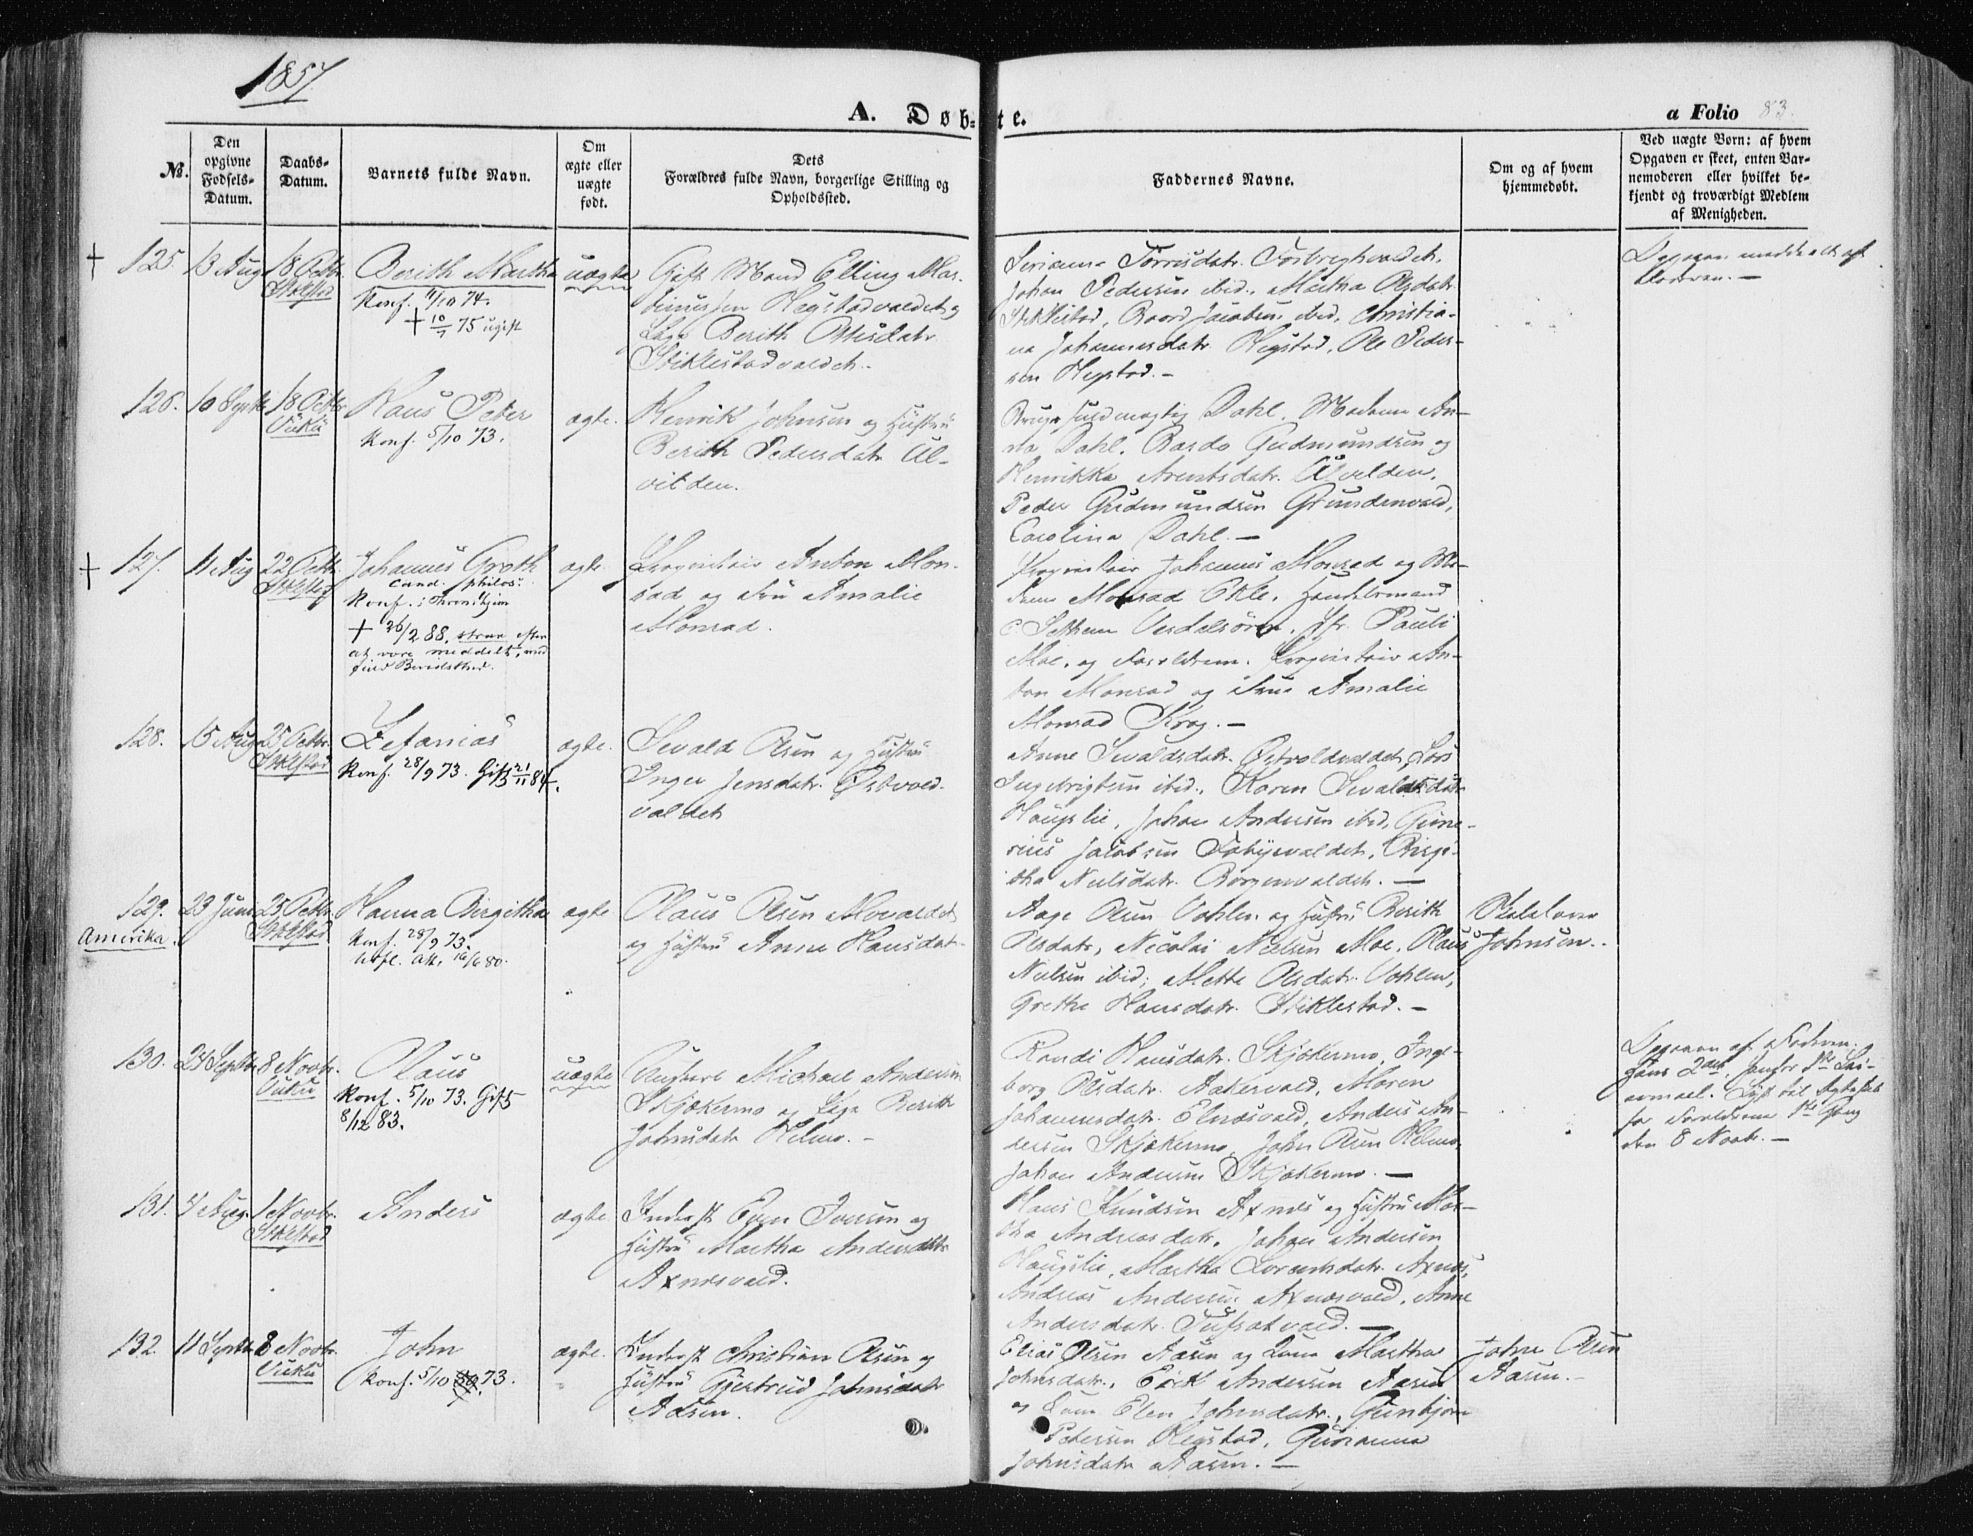 1857.
A. Døb-te.
a Folio 83.
No.
Den
opgivne
Fødsels-
Datum.
Daabs-
Datum.
Barnets fulde Navn.
Om
ægte eller
uægte
født.
Dets
Forældres fulde Navn, borgerlige Stilling og
Opholdssted.
Faddernes Navne.
Om og af hvem
hjemmedøbt.
Ved uægte Børn: af hvem
Opgaven er skeet, enten Bar-
nemoderen eller hvilket be-
kjendt og troværdigt Medlem
af Menigheden.
+ 125. 13 Aug 18 Octbr. Stklstad
Berith Martha
Konf. 4/10 74.
+ 10/7 75 ugift
uægte
Gift Mand Elling Mar-
tinussen Hegstadvaldet og
Berith
Stiklestadvaldet.
Torrisdatr.
Johan Pedersen ibid., Martha Olsdatr.
Stiklestad, Baard Jacobsen ibid., Christia-
na Johannesdatr. Hegstad, Ole Peder-
sen Hegstad. —
Opgaven meddelt af
Moderen. —
126. 10 Septbr 18 Octbr Vuku
Hans Peter
Konf. 5/10 73.
ægte.
Henrik Johnsen og Hustru
Berith Pedersdatr. Ul-
vilden.
Dahl, Madame An-
na Dahl, Bardo Gudmundsen og
Henrikka Arentsdatr. Ulvilden,
Peder Gudmundsen Grundenvald,
Carolina Dahl. —
+ 127. 11 Aug 22 Octbr. Stklstad
Johannes Groth
cand. philos.
Konf. i Thronhjem
+ 26/2 88, efter
at være meddelt
ægte.
Proprietair Anton Mon-
rad og Fru Amalie
Monrad.
Proprietair Johannes Monrad og Ma-
dame Monrad Ekle, Handelsmand
Verdalsøren, Jfr. Pauli
Moe, og Forældrene: Proprietair An-
ton Monrad og Frue Amalie
Monrad Krog. —
128. 15 Aug 25 Octbr. Stklstad
Zefanias
Konf. 28/9 73. Gift 21/11 84.
ægte.
Sevald Olsen og Hustru
Inger Jensdatr. Østvold-
valdet
Anne Sevaldsdatr. Østvoldvaldet, Lars
Ingebrigtsen ibid., Karen Sevaldsdatr.
Haugslie, Johan Andersen ibid., Gune-
rius Jacobsen Borgi-
tha Nielsdatr. Borgenvaldet. —
129. Amerika. 23 Juni 25 Octbr. Stklstad
Hanna Birgitha
Konf. 28/9 73.
Utfl. att. 16/6 80.
ægte
Olaus Olsen Movaldet
og Hustru Anna Hansdatr.
Aage Olsen Vohlen og Hustru Berith
Olsdatr., Nicolai Nielsen Moe, Olaus
Nielsen ibid., Mette Olsdatr. Vohlen,
Grethe Hansdatr. Stiklestad. —
Johnsen.
130. 24 Septbr 8 Novbr. Vuku
Olaus
Konf. 5/10 73. Gift
8/12 83.
uægte
August Michael Andersen
Skjækermo og Pige Berith
Johnsdatr. Helmo. —
Randi Hansdatr. Skjækermo, Inge-
borg Olsdatr. Aakervald, Maren
Johannesdatr. Elnæsvald, Anders An-
dersen Skjækermo, John Olsen Helmo,
Johan Andersen Skjækermo. —
Opgaven af Faderen.
Hans 2det, hendes 1ste Lei-
ermaal. Lyst til Ægteskab
for Forældrene 1ste Gang
den 8 Novbr. —
131. 4 Aug. 1 Novbr. Stklstad
Anders
ægte
Inderst Even Iversen og
Hustru Martha Andersdatr.
Axnæsvald.
Hans Knudsen Axnes og Hustru Mar-
tha Andreasdatr., Johan Andersen
Haugslie, Martha Lorentsdatr. Axnes,
Andreas Andersen Axnæsvald, Anne
Andersdatr. —
132. 11 Septbr 8 Novbr. Vuku
John
Konf. 5/10 73.
ægte.
Inderst Christian Olsen og
Hustru Gjertrud Johnsdatr.
Aasen.
Elias Olsen Aasen og Kone Martha
Johnsdatr., Erik Andersen Aasen
og Kone Elen Johnsdatr., Gunbjørn
Pedersen Hegstad, Gurianna
Johnsdatr. Aasen. —
John Olsen
Aasen. —